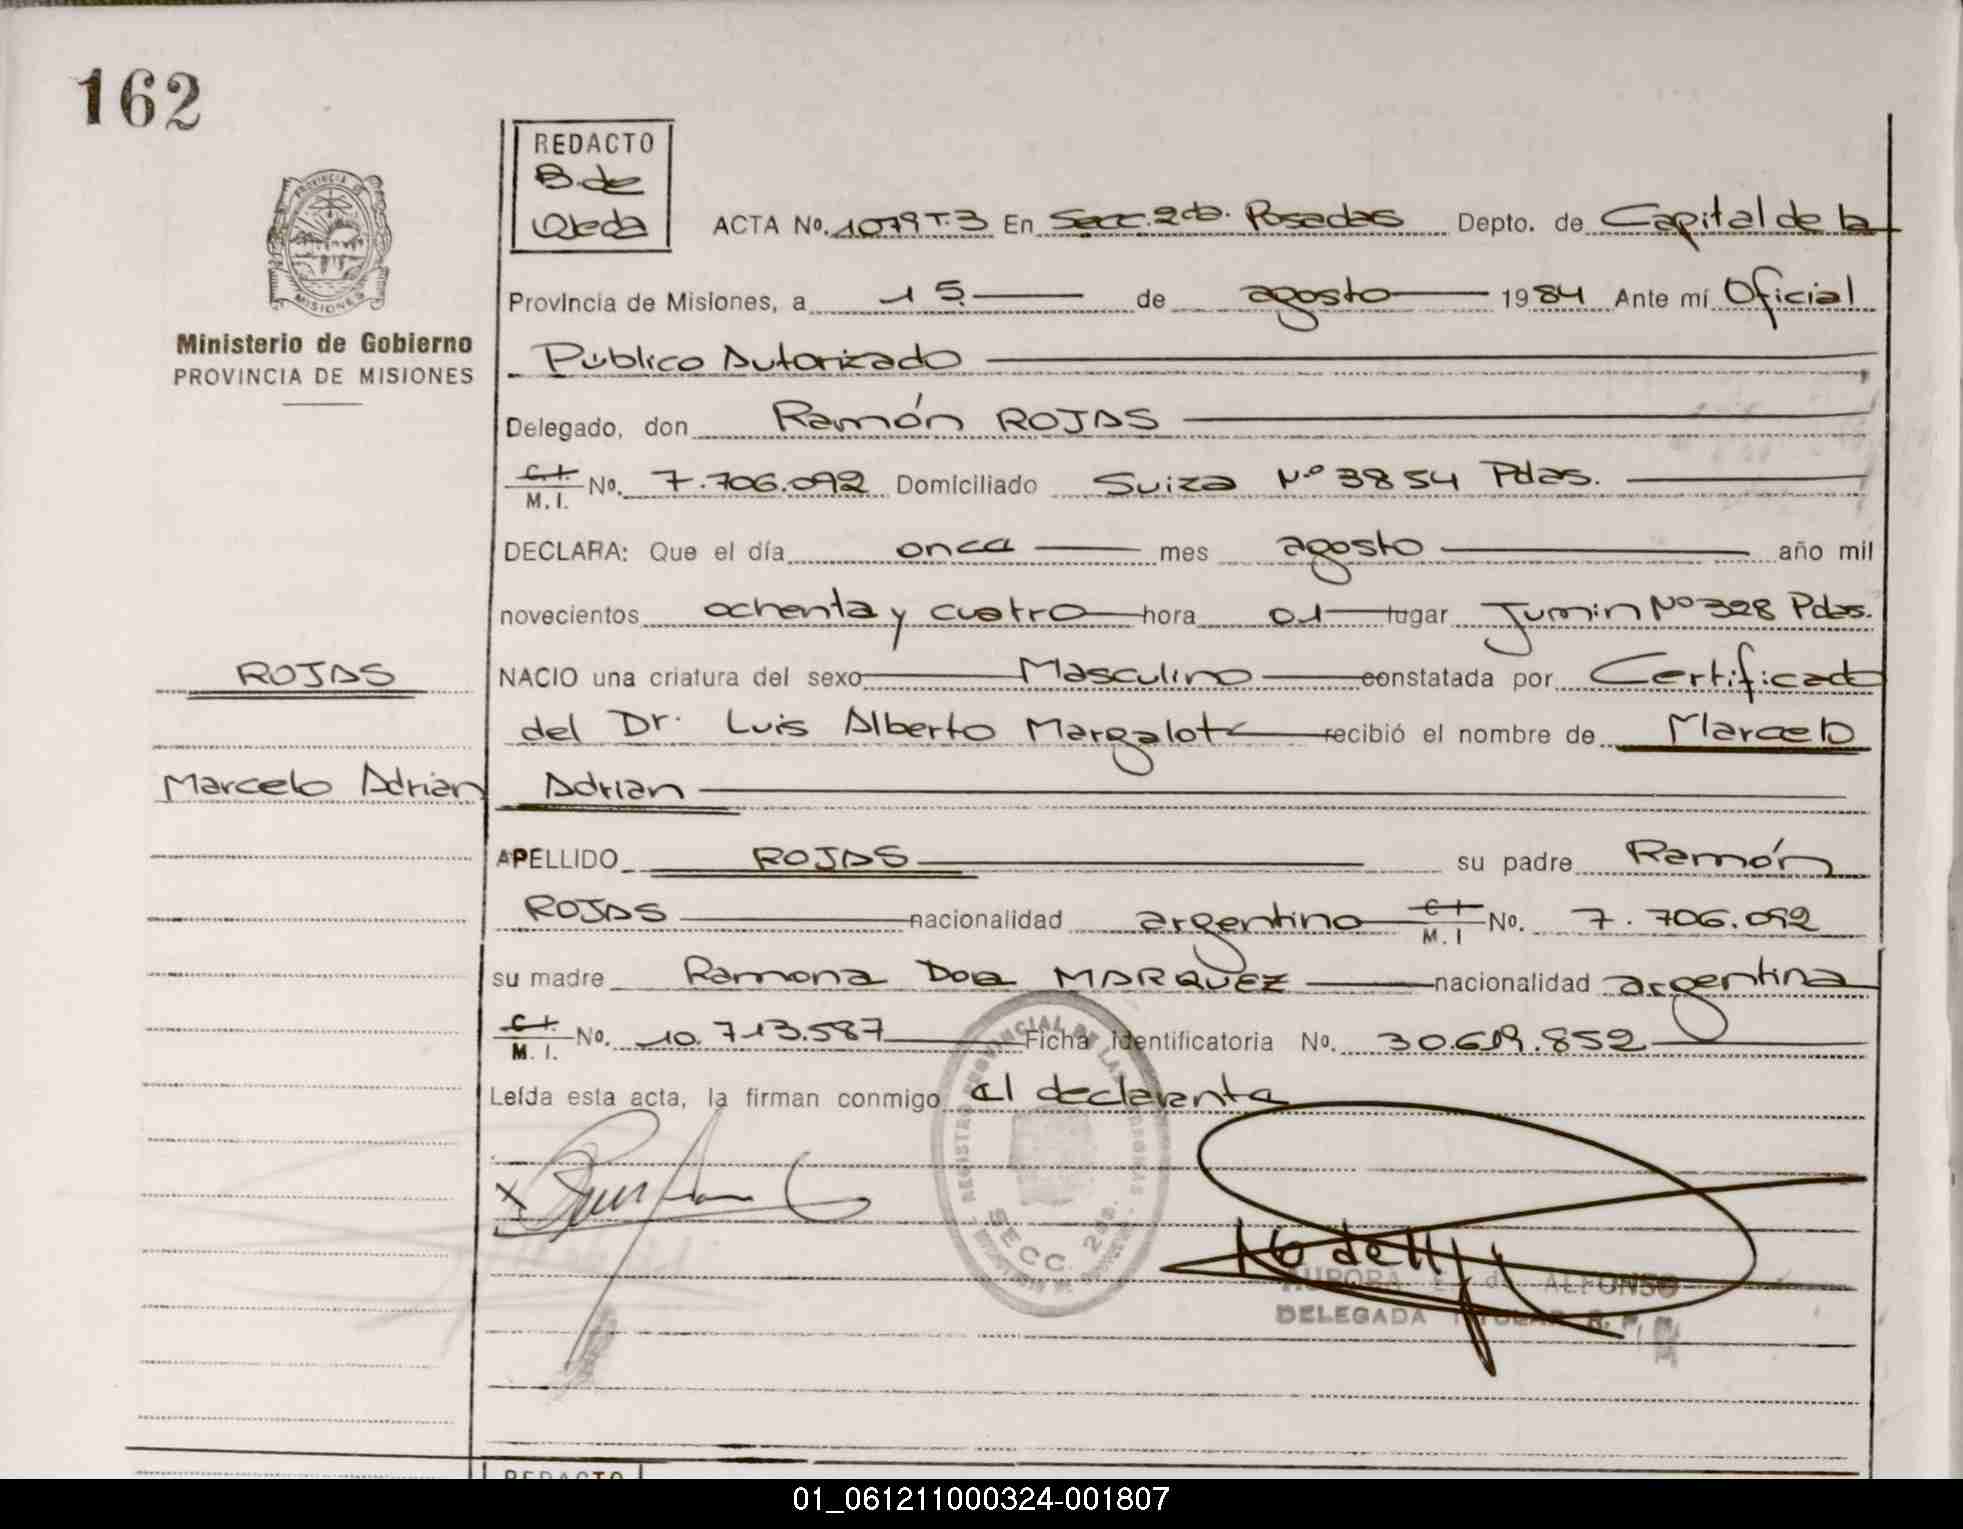 162
REDACTO
B. de
Ojeda
ACTA No. 1079 T.3 En Secc. 2da. Posadas Depto. de Capital de la
PROVINCIA DE
MISIONES
Provincia de Misiones, a 15 de agosto 1984 Ante mí Oficial
Ministerio de Gobierno
PROVINCIA DE MISIONES
Público Autorizado
Delegado, don Ramón ROJAS
C.I. M.I. No. 7.706.092 Domiciliado Suiza Nº 3854 Pdas.
DECLARA: Que el día once mes agosto año mil
novecientos ochenta y cuatro hora 01 lugar Junin Nº 328 Pdas.
ROJAS
NACIO una criatura del sexo Masculino constatada por Certificado
del Dr. Luis Alberto Margalot recibió el nombre de Marcelo
Marcelo Adrian
Adrian
APELLIDO ROJAS su padre Ramón
ROJAS nacionalidad argentino C.I. M.I No. 7.706.092
su madre Ramona MARQUEZ nacionalidad argentina
C.I. M.I. No. 10.713.587 Ficha identificatoria No. 30.619.852
Leída esta acta, la firman conmigo el declarante
REGISTRO PROVINCIAL DE LAS PERSONAS
SECC. 2da.
AURORA E. de ALFONSO
DELEGADA TITULAR R. P.
REDACTO
01_061211000324-001807